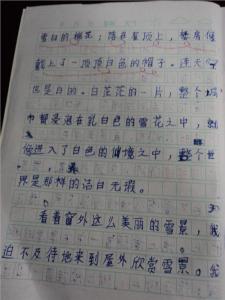 雪白的棉花；落在屋顶上，替房屋
戴上了一顶顶白色的帽子。连天
也是白的。白茫茫的一片，整个城
市都浸泡在乳白色的雪花之中，
使进入了白色的仙境之中，整个世
界是那样的洁白无瑕。
看着窗外这么美丽的雪景，我
迫不及待地来到屋外欣赏雪景。我